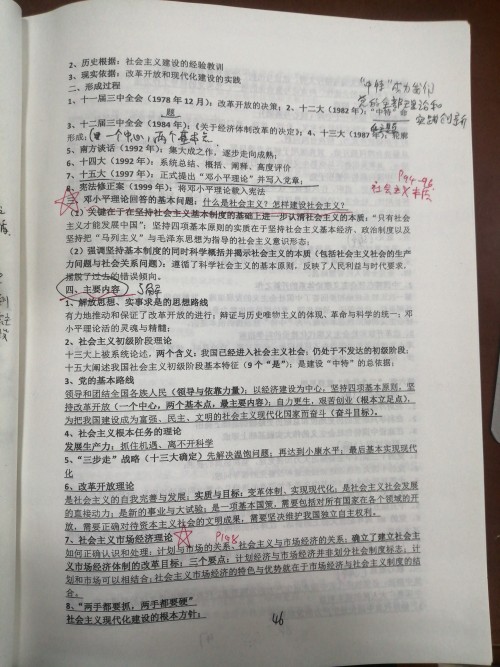 2、历史根据：社会主义建设的经验教训
3、现实依据：改革开放和现代化建设的实践
二、形成过程
1、十一届三中全会（1978 年 12 月）：改革开放的决策；2、十二大（1982 年）：“中特”命
题
3、十二届三中全会（1984 年）：《关于经济体制改革的决定》；4、十三大（1987 年）：轮廓
形成；（一个中心，两个基本点
5、南方谈话（1992 年）：集大成之作，逐步走向成熟；
6、十四大（1992 年）：系统总结、概括、阐释、高度评价
7、十五大（1997 年）：正式提出“邓小平理论”并写入党章；
8、宪法修正案（1999 年）：将邓小平理论载入宪法
三、邓小平理论回答的基本问题：什么是社会主义？怎样建设社会主义？
（1）关键在于在坚持社会主义基本制度的基础上进一步认清社会主义的本质：“只有社会
主义才能发展中国”；坚持四项基本原则的实质在于坚持社会主义基本经济、政治制度以及
坚持把“马列主义”与毛泽东思想为指导的社会主义意识形态；
（2）强调坚持基本制度的同时科学概括并揭示社会主义的本质（包括社会主义社会的生产
力问题与社会关系问题）；遵循了科学社会主义的基本原则，反映了人民利益与时代要求，
摆脱了过去的错误倾向。
四、主要内容
1、解放思想、实事求是的思想路线
有力地推动和保证了改革开放的进行；辩证与历史唯物主义的体现、革命与科学的统一；邓
小平理论活的灵魂与精髓；
2、社会主义初级阶段理论
十三大上被系统论述，两个含义：我国已经进入社会主义社会；仍处于不发达的初级阶段；
十五大阐述我国社会主义初级阶段基本特征（9 个“是”）；是建设“中特”的总依据；
3、党的基本路线
领导和团结全国各族人民（领导与依靠力量）；以经济建设为中心，坚持四项基本原则，坚
持改革开放（一个中心，两个基本点，最主要内容）；自力更生，艰苦创业（根本立足点），
为把我国建设成为富强、民主、文明的社会主义现代化国家而奋斗（奋斗目标）。
4、社会主义根本任务的理论
发展生产力；抓住机遇、离不开科学
5、“三步走”战略（十三大确定）先解决温饱问题；再达到小康水平；最后基本实现现代
化
6、改革开放理论
是社会主义的自我完善与发展；实质与目标：变革体制、实现现代化；是社会主义社会发展
的直接动力；是新的事业与大试验；是一项基本国策，需要包括对所有国家在各个领域的开
放，需要正确对待资本主义社会的文明成果，需要坚决维护我国独立自主权利。
7、社会主义市场经济理论 P198
如何正确认识和处理：计划与市场的关系、社会主义与市场经济的关系；确立了建立社会主
义市场经济体制的改革目标；三个要点：计划经济与市场经济并非划分社会制度标志；计
划和市场可以相结合；社会主义市场经济的特色与优势就在于市场经济与社会主义制度的结
合。
8、“两手都要抓，两手都要硬”
社会主义现代化建设的根本方针；
46
“中特”成为我们
党的全部理论和
实践创新
的主题
P94-96
社会主义本质